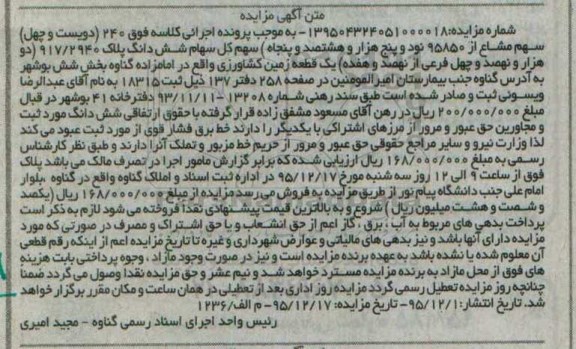 متن آگهی مزایده
شماره مزایده:139504324051000018- به موجب پرونده اجرائی کلاسه فوق 240 (دویست و چهل)
سهم مشاع از 95850 نود و پنج هزار و هشتصد و پنجاه ) سهم کل سهام شش دانگ پلاک 917/2940 (دو
هزار و نهصد و چهل فرعی از نهصد و هفده) یک قطعه زمین کشاورزی واقع در امامزاده گناوه بخش شش بوشهر
به آدرس گناوه جنب بیمارستان امیرالمومنین در صفحه 258 دفتر 137 ذیل ثبت 18315 به نام آقای عبدالرضا
ویسونی ثبت و صادر شده است طبق سند رهنی شماره 13208 - 93/11/11 دفترخانه 41 بوشهر در قبال
مبلغ 200/000/000 ریال در رهن آقای مسعود مشفق زاده قرار گرفته با حقوق ارتفاقی شش دانگ مورد ثبت
و مجاورین حق عبور و مرور از مرزهای اشتراکی با یکدیگر را دارند خط برق فشار قوی از مورد ثبت عبود می کند
لذا وزارت نیرو و سایر مراجع حقوقی حق عبور و مرور از حریم خط مزبور و تملک آنرا دارند و طبق نظر کارشناس
رسمی به مبلغ 168/000/000 ریال ارزیابی شده که برابر گزارش مامور اجرا در تصرف مالک می باشد پلاک
فوق از ساعت 9 الی 12 روز سه شنبه مورخ 95/12/17 در اداره ثبت اسناد و املاک گناوه واقع در گناوه ،بلوار
امام علی جنب دانشگاه پیام نور از طریق مزایده به فروش می رسد مزایده از مبلغ 168/000/000 ریال (یکصد
و شصت و هشت میلیون ریال ) شروع و به بالاترین قیمت پیشنهادی نقداً فروخته می شود لازم به ذکر است
پرداخت بدهی های مربوط به آب ، برق ، گاز اعم از حق انشعاب و یا حق اشتراک و مصرف در صورتی که مورد
مزایده دارای آنها باشد و نیز بدهی های مالیاتی و عوارض شهرداری و غیره تا تاریخ مزایده اعم از اینکه رقم قطعی
آن معلوم شده یا نشده باشد به عهده برنده مزایده است و نیز در صورت وجود مازاد ، وجوه پرداختی بابت هزینه
های فوق از محل مازاد به برنده مزایده مسترد خواهد شد و نیم عشر و حق مزایده نقدا وصول می گردد ضمناً
چنانچه روز مزایده تعطیل رسمی گردد مزایده روز اداری بعد از تعطیلی در همان ساعت و مکان مقرر برگزار خواهد
شد. تاریخ انتشار: 95/12/1- تاریخ مزایده: 95/12/17- م الف/1236
رئیس واحد اجرای اسناد رسمی گناوه - مجید امیری